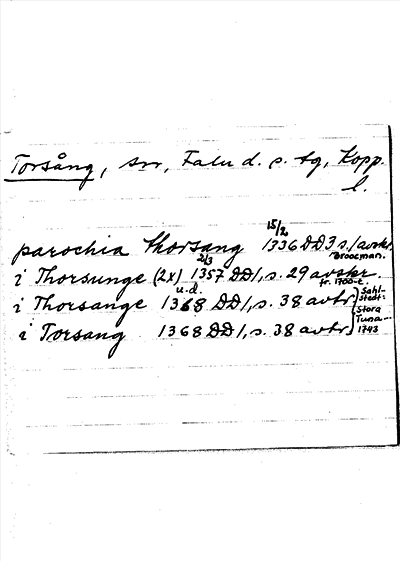 Torsång, sn, Falu d. s. tg, Kopp.
l.
parochia thorsang 15/2 1336 DD3 s. 1 avskr. Broocman.
i Thorsunge (2x) 2/3 1357 DD1, s. 29 avskr. fr. 1700-t.
i Thorsange u.d. 1368 DD1, s. 38 avtr Sahl-
stedt:
i Torsang 1368 DD1, s. 38 avtr Stora
Tuna...
1743